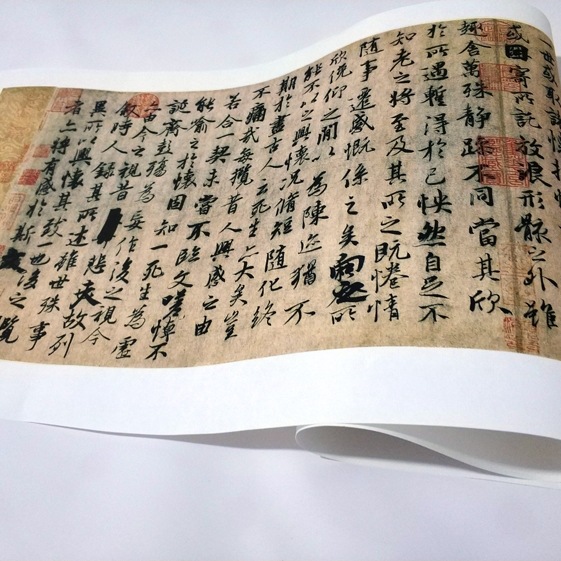 一世或取諸懷抱
或因寄所託放浪形骸之外雖
趣舍萬殊靜躁不同當其欣
於所遇蹔得於己怏然自足不
知老之將至及其所之既惓情
隨事遷感慨係之矣向之所
欣俛仰之閒以為陳迹猶不
能不以之興懷況脩短隨化終
期於盡古人云死生亦大矣豈
不痛哉每攬昔人興感之由
若合一契未嘗不臨文嗟悼不
能喻之於懷固知一死生為虛
誕齊彭殤為妄作後之視今
亦由今之視昔悲夫故列
敘時人錄其所述雖世殊事
異所以興懷其致一也後之攬
者亦將有感於斯文